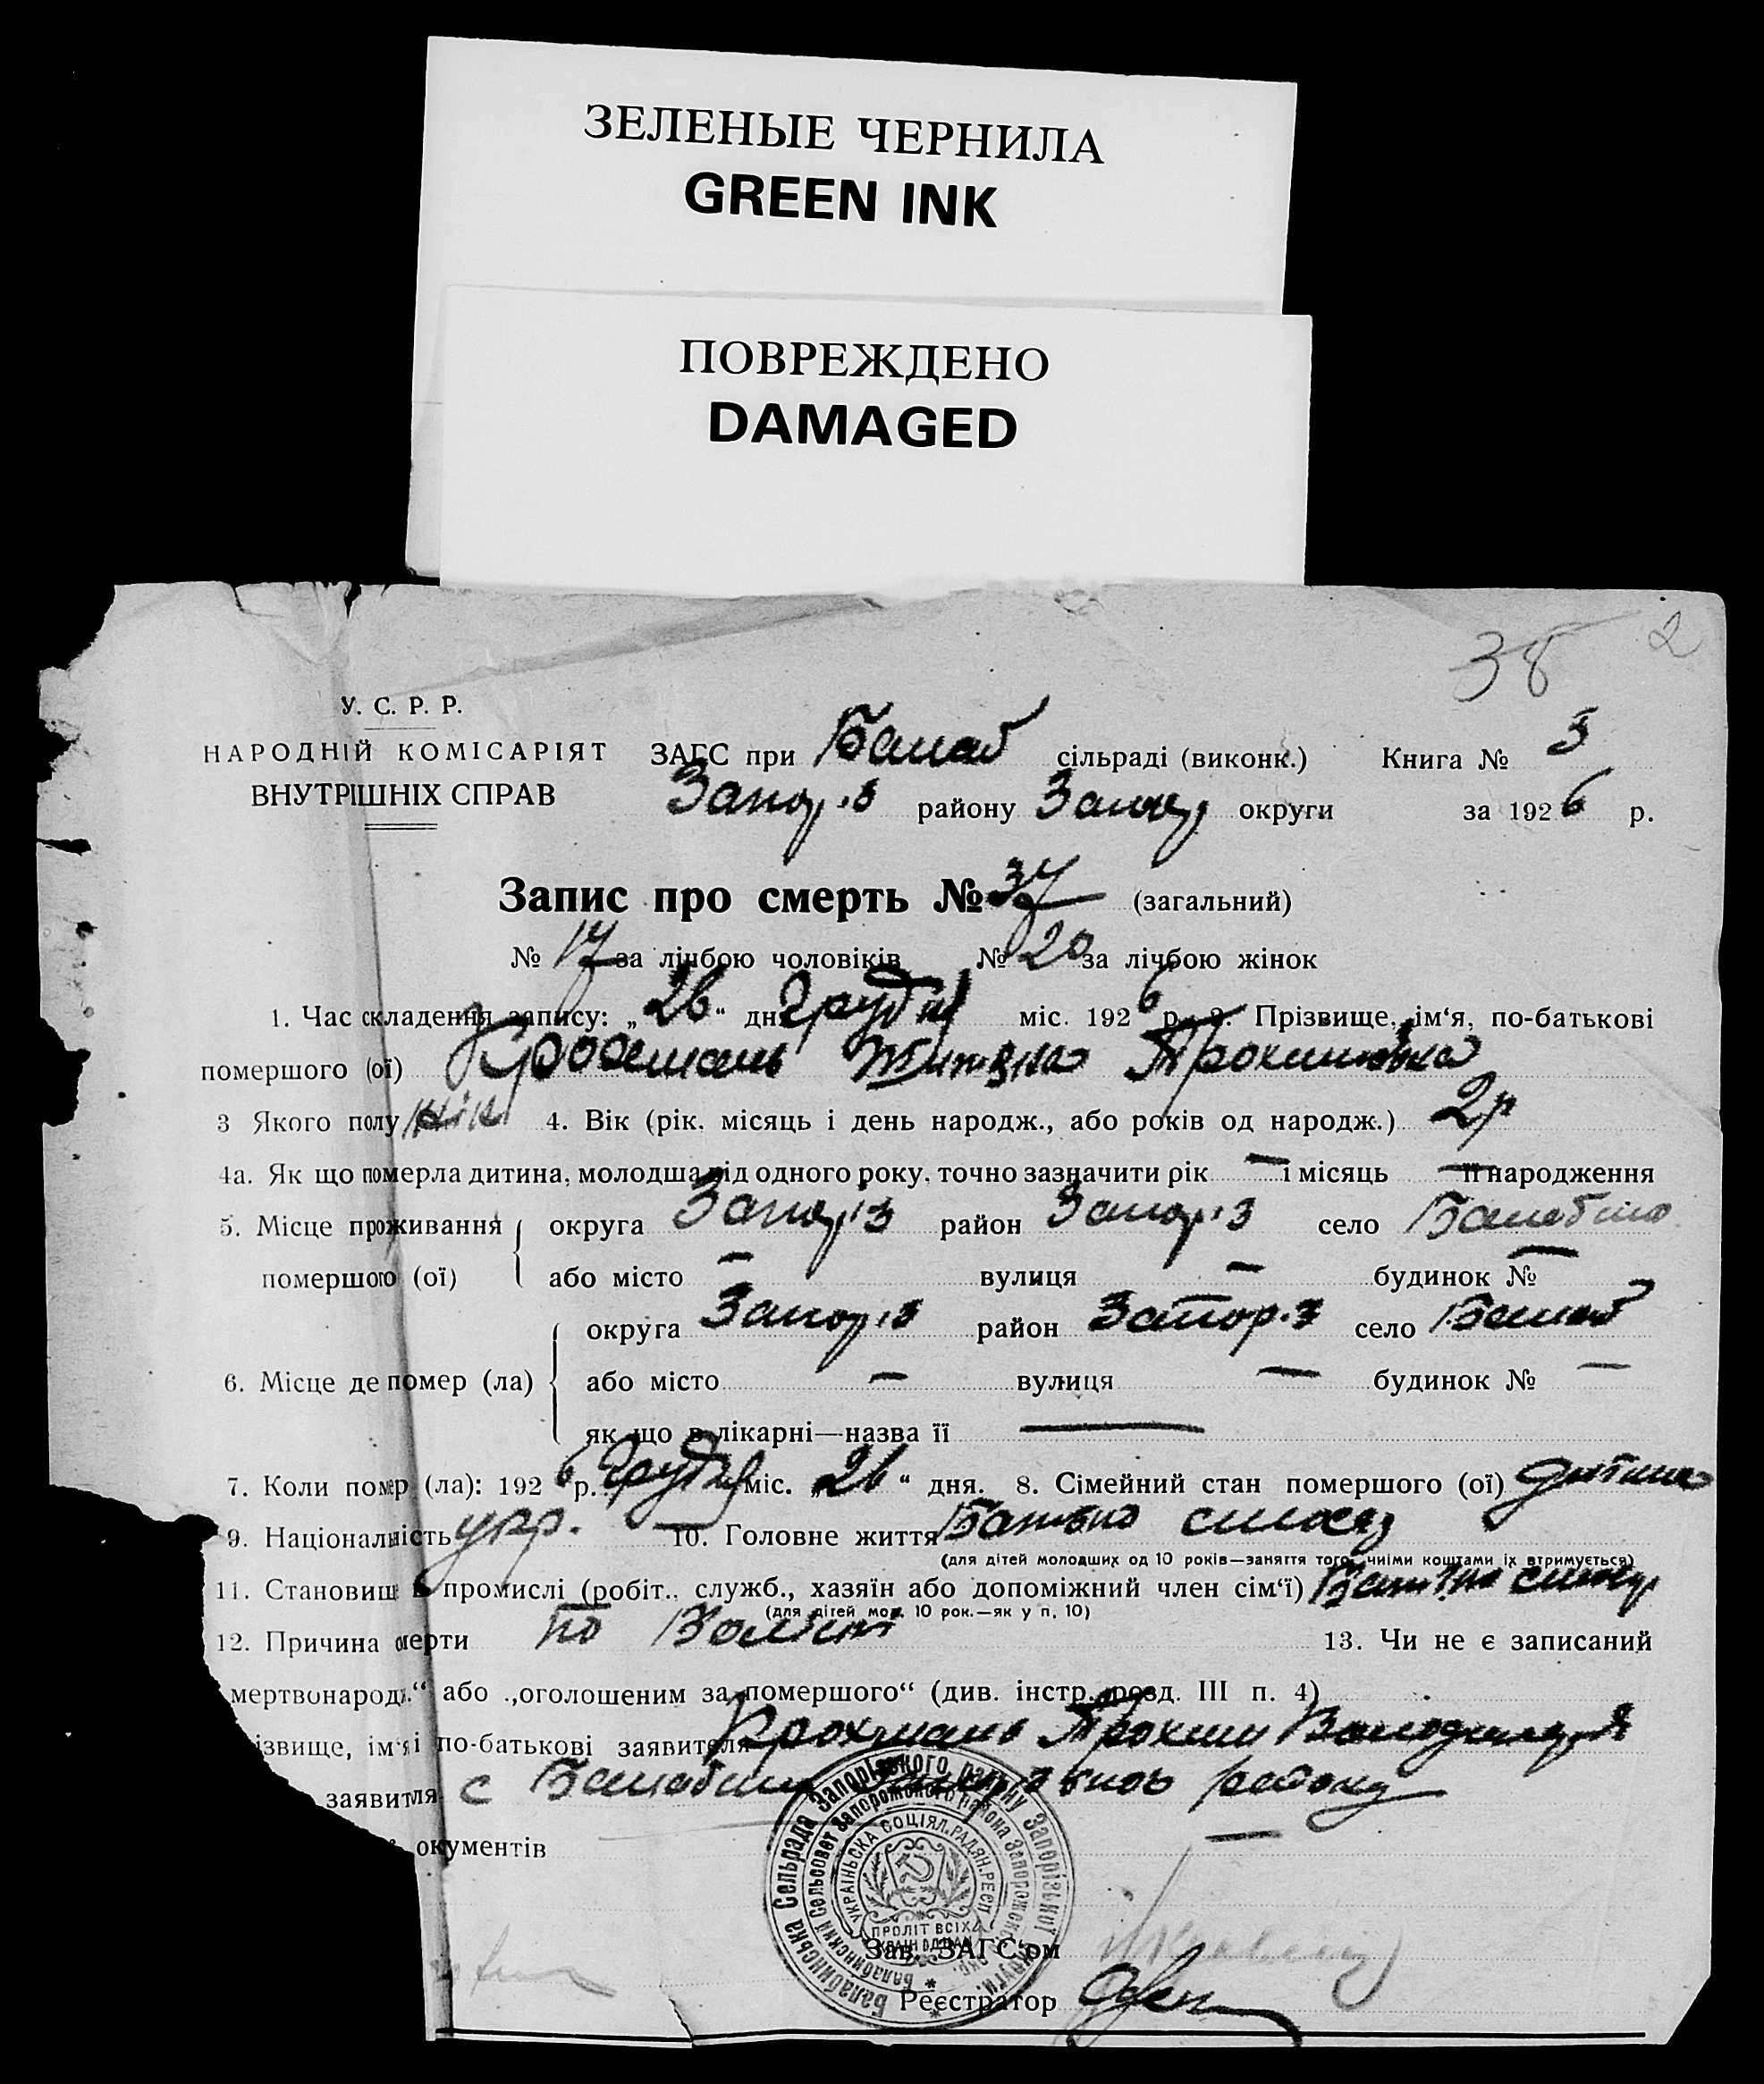 ЗЕЛЕНЫЕ ЧЕРНИЛА
GREEN INK
ПОВРЕЖДЕНО
DAMAGED
38 2
У. С. Р. Р.
НАРОДНІЙ КОМІСАРІЯТ ЗАГС при Балаб сільраді (виконк.) Книга № 5
ВНУТРІШНІХ СПРАВ Запор.з району Запор округи за 1926 р.
Запис про смерть № 37 (загальний)
№ 17 за лічбою чоловіків № 20 за лічбою жінок
1. Час складення запису: „26“ дня Грудня міс. 1926 р. 2. Прізвище, ім‘я, по-батькові
помершого (ої) Трохимівна
3 Якого полу жін 4. Вік (рік. місяць і день народж., або років од народж.) 2 р
4а. Як що померла дитина, молодша від одного року, точно зазначити рік — і місяць — її народження
5. Місце проживання округа Запоріз район Запоріз село Балабино
помершого (ої) або місто — вулиця — будинок № —
округа Запоріз район Запор.з село Балаб
6. Місце де помер (ла) або місто — вулиця — будинок № —
як що в лікарні—назва її —
7. Коли помер (ла): 1926 р. Грудня міс. „26“ дня. 8. Сімейний стан помершого (ої) дитина
9. Національність укр. 10. Головне життя Батько
(для дітей молодших од 10 років—заняття того, чиіми коштами їх втримується)
11. Становищ в промислі (робіт., служб., хазяїн або допоміжний член сім‘ї) Батько
(для дітей мол. 10 рок.—як у п. 10)
12. Причина смерти 13. Чи не є записаний
мертвонарод.“ або „оголошеним за помершого“ (див. інстр. розд. III п. 4)
ізвище, ім‘я і по-батькові заявителя Крохмаль Трохим
заявителя с Балабино району
окументів —
Балабинська Сельрада Запорізького району Запорізької округи.
Балабинский Сельсовет Запорожского района Запорожск. окр.
УКРАЇНСЬКА СОЦІЯЛ.РАДЯН.РЕСП
ПРОЛІТ ВСІХ
КРАЇН ЄДНАЙ
Зав. ЗАГС‘ом
Реєстратор